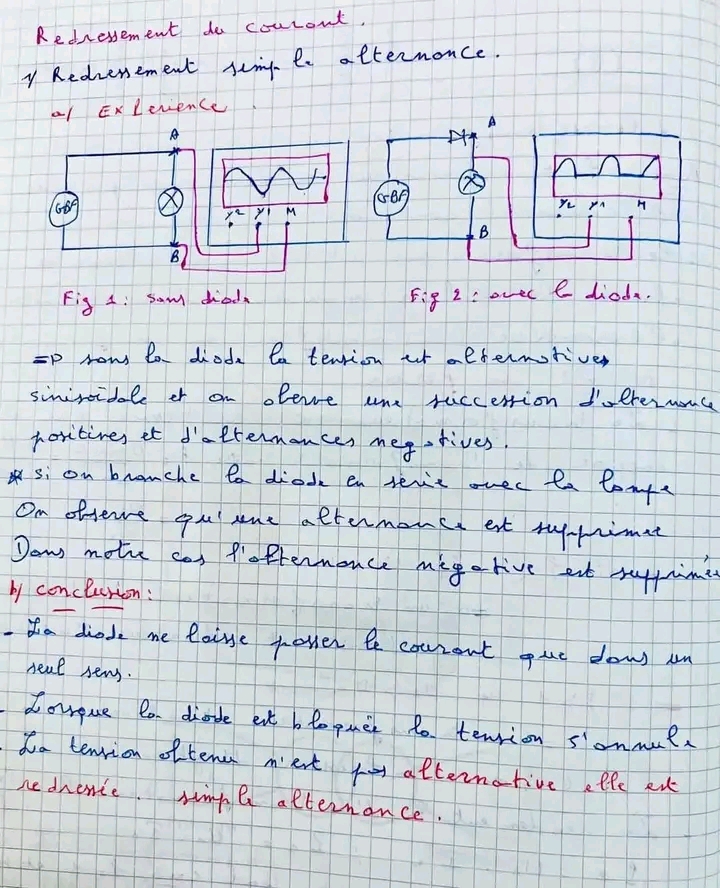 Redressement du courant.
1/ Redressement simple alternance.
a/ Experience.
A
A
GBF
Y2 Y1 M
GBF
Y2 Y1 M
B
B
Fig 1: sans diode
Fig 2: avec la diode.
=> sans la diode la tension est alternatives
sinisoïdale et on oberve une succession d'alternance
positives et d'alternances negatives.
* si on branche la diode en série avec la lampe
On observe qu'une alternance est supprimée
Dans notre cas l'alternance négative est supprimée
b/ conclusion:
- La diode ne laisse passer le courant que dans un
seul sens.
- Lorsque la diode est bloquée la tension s'annule
- La tension obtenu n'est pas alternative elle est
redressée. simple alternance.